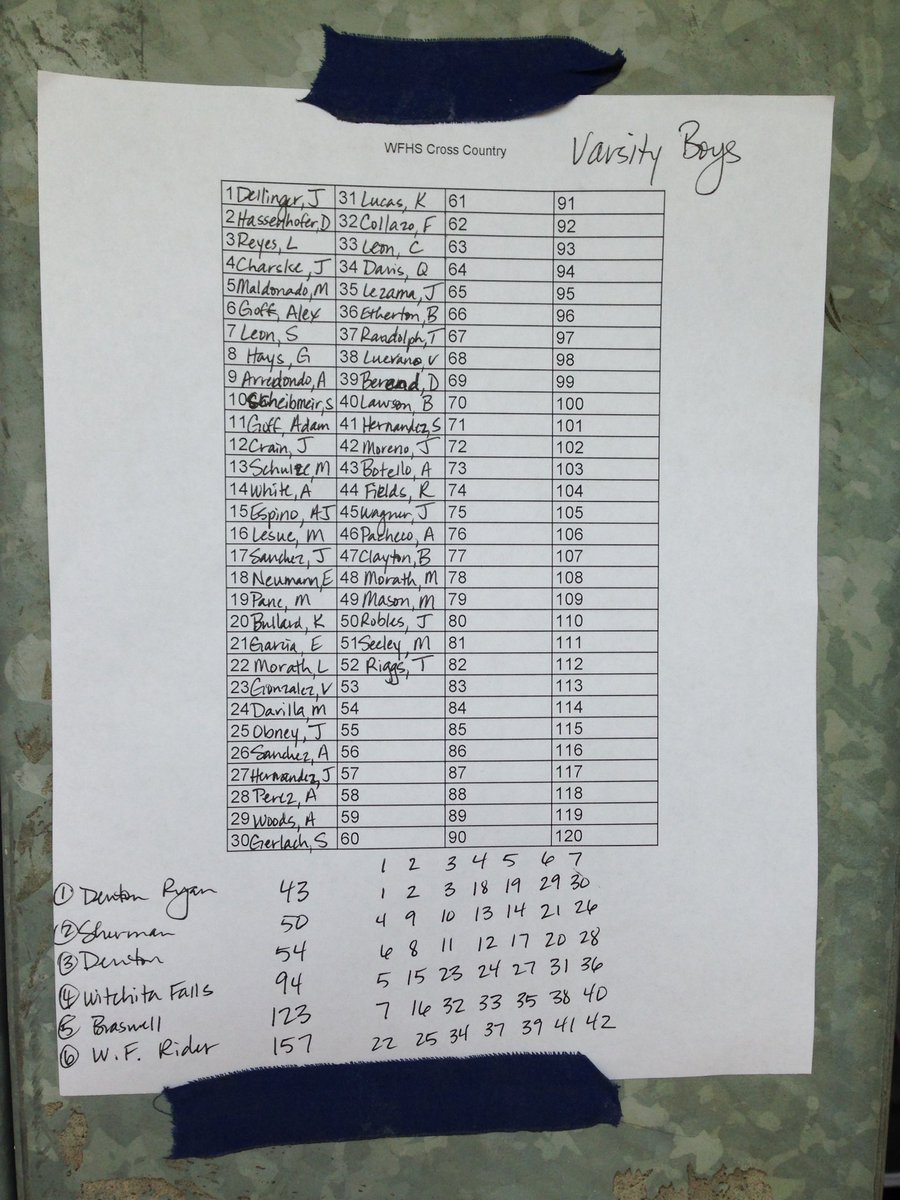 WFHS Cross Country Varsity Boys
1 Dellinger, J 31 Lucas, K 61 91
2 Hassenhofer, D 32 Collazo, F 62 92
3 Reyes, L 33 Leon, C 63 93
4 Charske, J 34 Davis, Q 64 94
5 Maldonado, M 35 Lezama, J 65 95
6 Goff, Alex 36 Etherton, B 66 96
7 Leon, S 37 Randolph, T 67 97
8 Hays, G 38 Luevano, V 68 98
9 Arredondo, A 39 Berend, D 69 99
10 Scheibmeir, S 40 Lawson, B 70 100
11 Goff, Adam 41 Hernandez, S 71 101
12 Crain, J 42 Moreno, J 72 102
13 Schulze, M 43 Botello, A 73 103
14 White, A 44 Fields, R 74 104
15 Espino, AJ 45 Wagner, J 75 105
16 Leslie, M 46 Pacheco, A 76 106
17 Sanchez, J 47 Clayton, B 77 107
18 Neumann, E 48 Morath, M 78 108
19 Pane, M 49 Mason, M 79 109
20 Bullard, K 50 Robles, J 80 110
21 Garcia, E 51 Seeley, M 81 111
22 Morath, L 52 Riggs, T 82 112
23 Gonzalez, V 53 83 113
24 Davilla, M 54 84 114
25 Obney, J 55 85 115
26 Sanchez, A 56 86 116
27 Hernandez, J 57 87 117
28 Perez, A 58 88 118
29 Woods, A 59 89 119
30 Gerlach, S 60 90 120
1 2 3 4 5 6 7
① Denton Ryan 43 1 2 3 18 19 29 30
② Sherman 50 4 9 10 13 14 21 26
③ Denton 54 6 8 11 12 17 20 28
④ Witchita Falls 94 5 15 23 24 27 31 36
⑤ Braswell 123 7 16 32 33 35 38 40
⑥ W.F. Rider 157 22 25 34 37 39 41 42